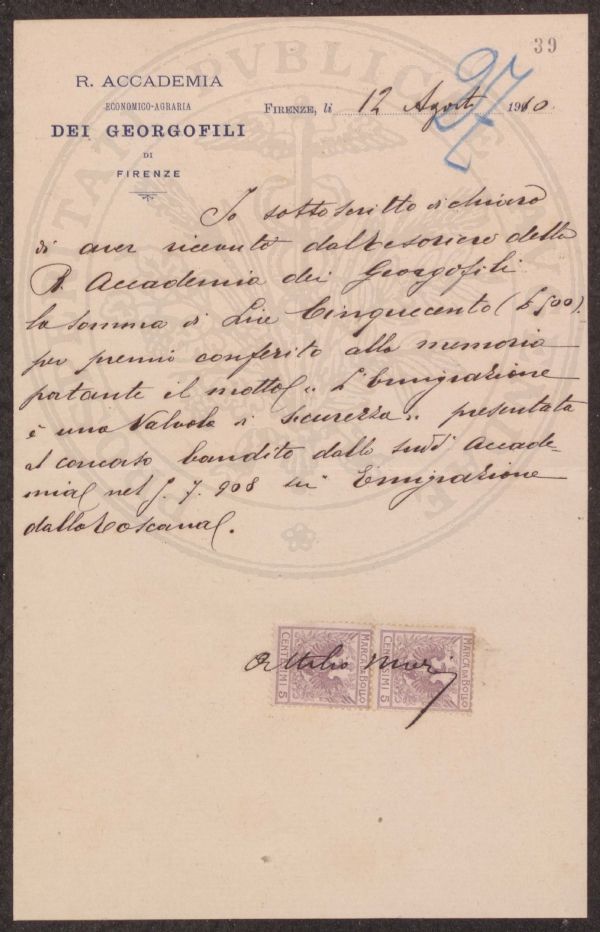 39
R. ACCADEMIA
ECONOMICO-AGRARIA
DEI GEORGOFILI
DI
FIRENZE
FIRENZE, li 12 Agosto 1910
97
Io sottoscritto dichiaro
di aver ricevuto dal Tesoriere della
R. Accademia dei Georgofili
la somma di Lire Cinquecento (£ 500).
per premio conferito alla memoria
portante il motto „ L'Emigrazione
è una Valvola di sicurezza „ presentata
al concorso bandito dalla sudd. Accade-
mia nel 908 su Emigrazione
dalla Toscana.
MARCA DA BOLLO
CENTESIMI 5
MARCA DA BOLLO
CENTESIMI 5
Attilio Mori